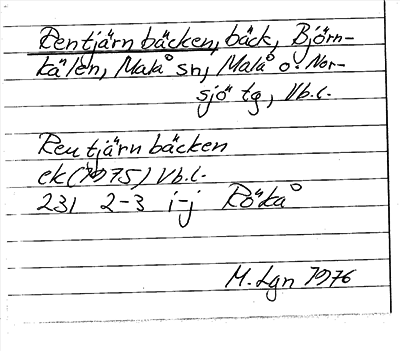 Rentjärnbäcken, bäck, Björn-
kälen, Malå sn, Malå o. Nor-
sjö tg, Vb.l.
Rentjärnbäcken
ek (1975) Vb.l.
231 2-3 i-j Rökå
M. Lgn 1976